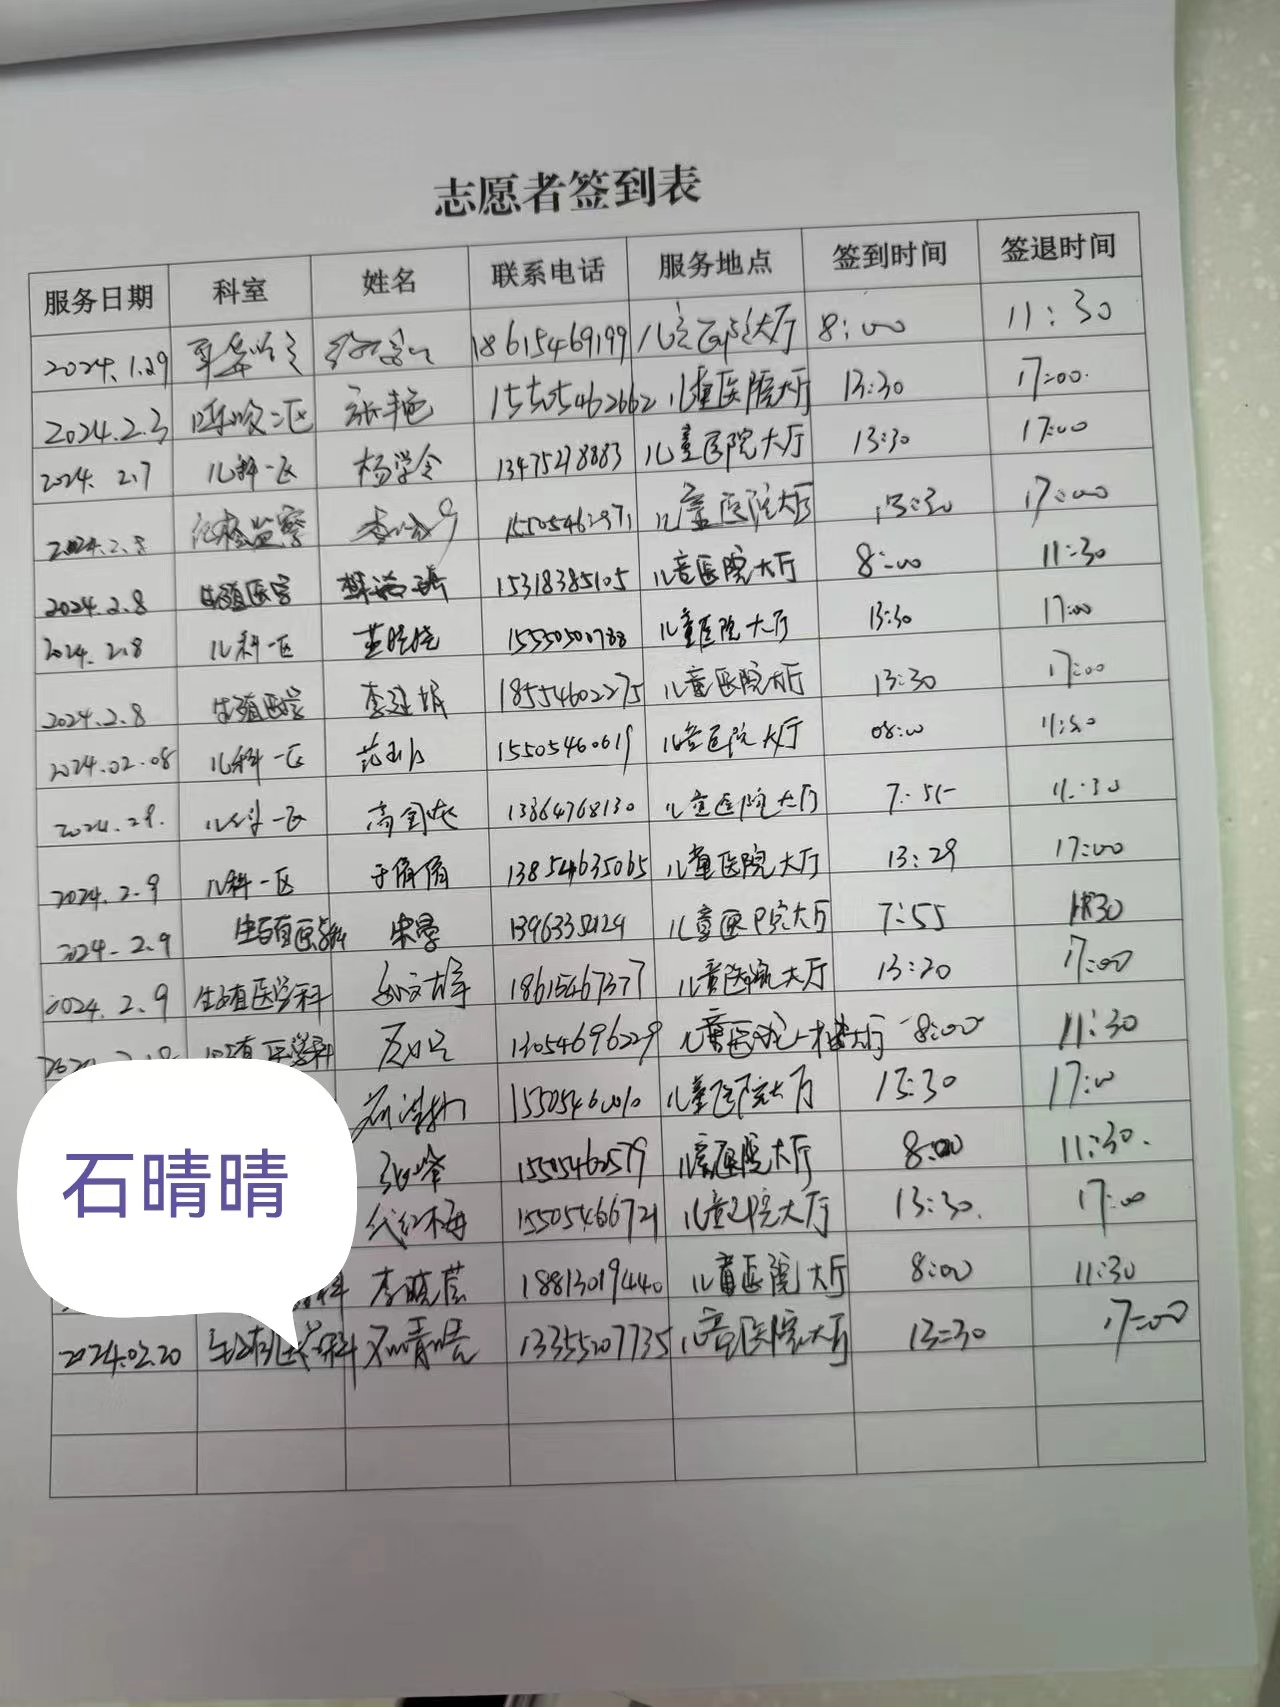 志愿者签到表
服务日期 科室 姓名 联系电话 服务地点 签到时间 签退时间
2024.1.29 18615469199 儿童医院大厅 8:00 11:30
2024.2.3 呼吸二区 张艳 15505462662 儿童医院大厅 13:30 17:00
2024.2.7 儿科一区 杨学令 13475278883 儿童医院大厅 13:30 17:00
2024.2.8 纪检监察 15505462971 儿童医院大厅 13:30 17:00
2024.2.8 生殖医学 15318385105 儿童医院大厅 8:00 11:30
2024.2.8 儿科一区 15550500788 儿童医院大厅 13:30 17:00
2024.2.8 生殖医学 李延娟 18554602275 儿童医院大厅 13:30 17:00
2024.02.08 儿科一区 15505460619 儿童医院大厅 08:00 11:30
2024.2.9. 儿科一区 13864768130 儿童医院大厅 7:55 11:30
2024.2.9 儿科一区 于倩倩 13854635065 儿童医院大厅 13:29 17:00
2024.2.9 生殖医学科 儿童医院大厅 7:55 11:30
2024.2.9 生殖医学科 18615467377 儿童医院大厅 13:20 17:00
生殖医学科 13054696229 儿童医院一楼大厅 8:00 11:30
15505460010 儿童医院大厅 13:30 17:00
15505460579 儿童医院大厅 8:00 11:30.
代红梅 15505466721 儿童医院大厅 13:30. 17:00
石晴晴
科 李晓蕊 18813019440 儿童医院大厅 8:00 11:30
2024.02.20 生殖医学科 13355207735 儿童医院大厅 13:30 17:00